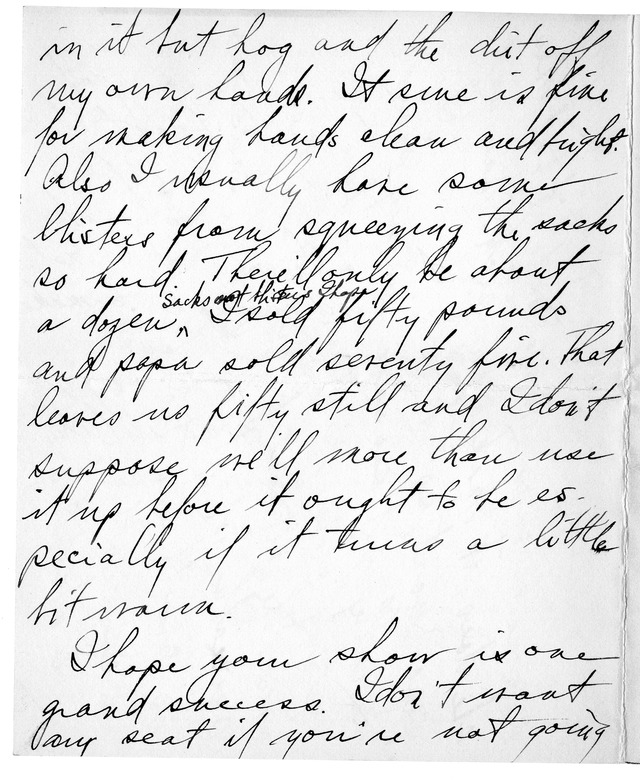 in it but hog and the dirt off
my own hands. It sure is fine
for making hands clean and bright.
Also I usually have some
blisters from squeezing the sacks
so hard. There'll only be about
sacks not blisters I hope
a dozen, ^ I sold fifty pounds
and papa sold seventy five. That
leaves us fifty still and I don't
suppose we'll more than use
it up before it ought to be es-
pecially if it turns a little
bit warm.
I hope your show is one
grand success. I don't want
any seat if you're not going